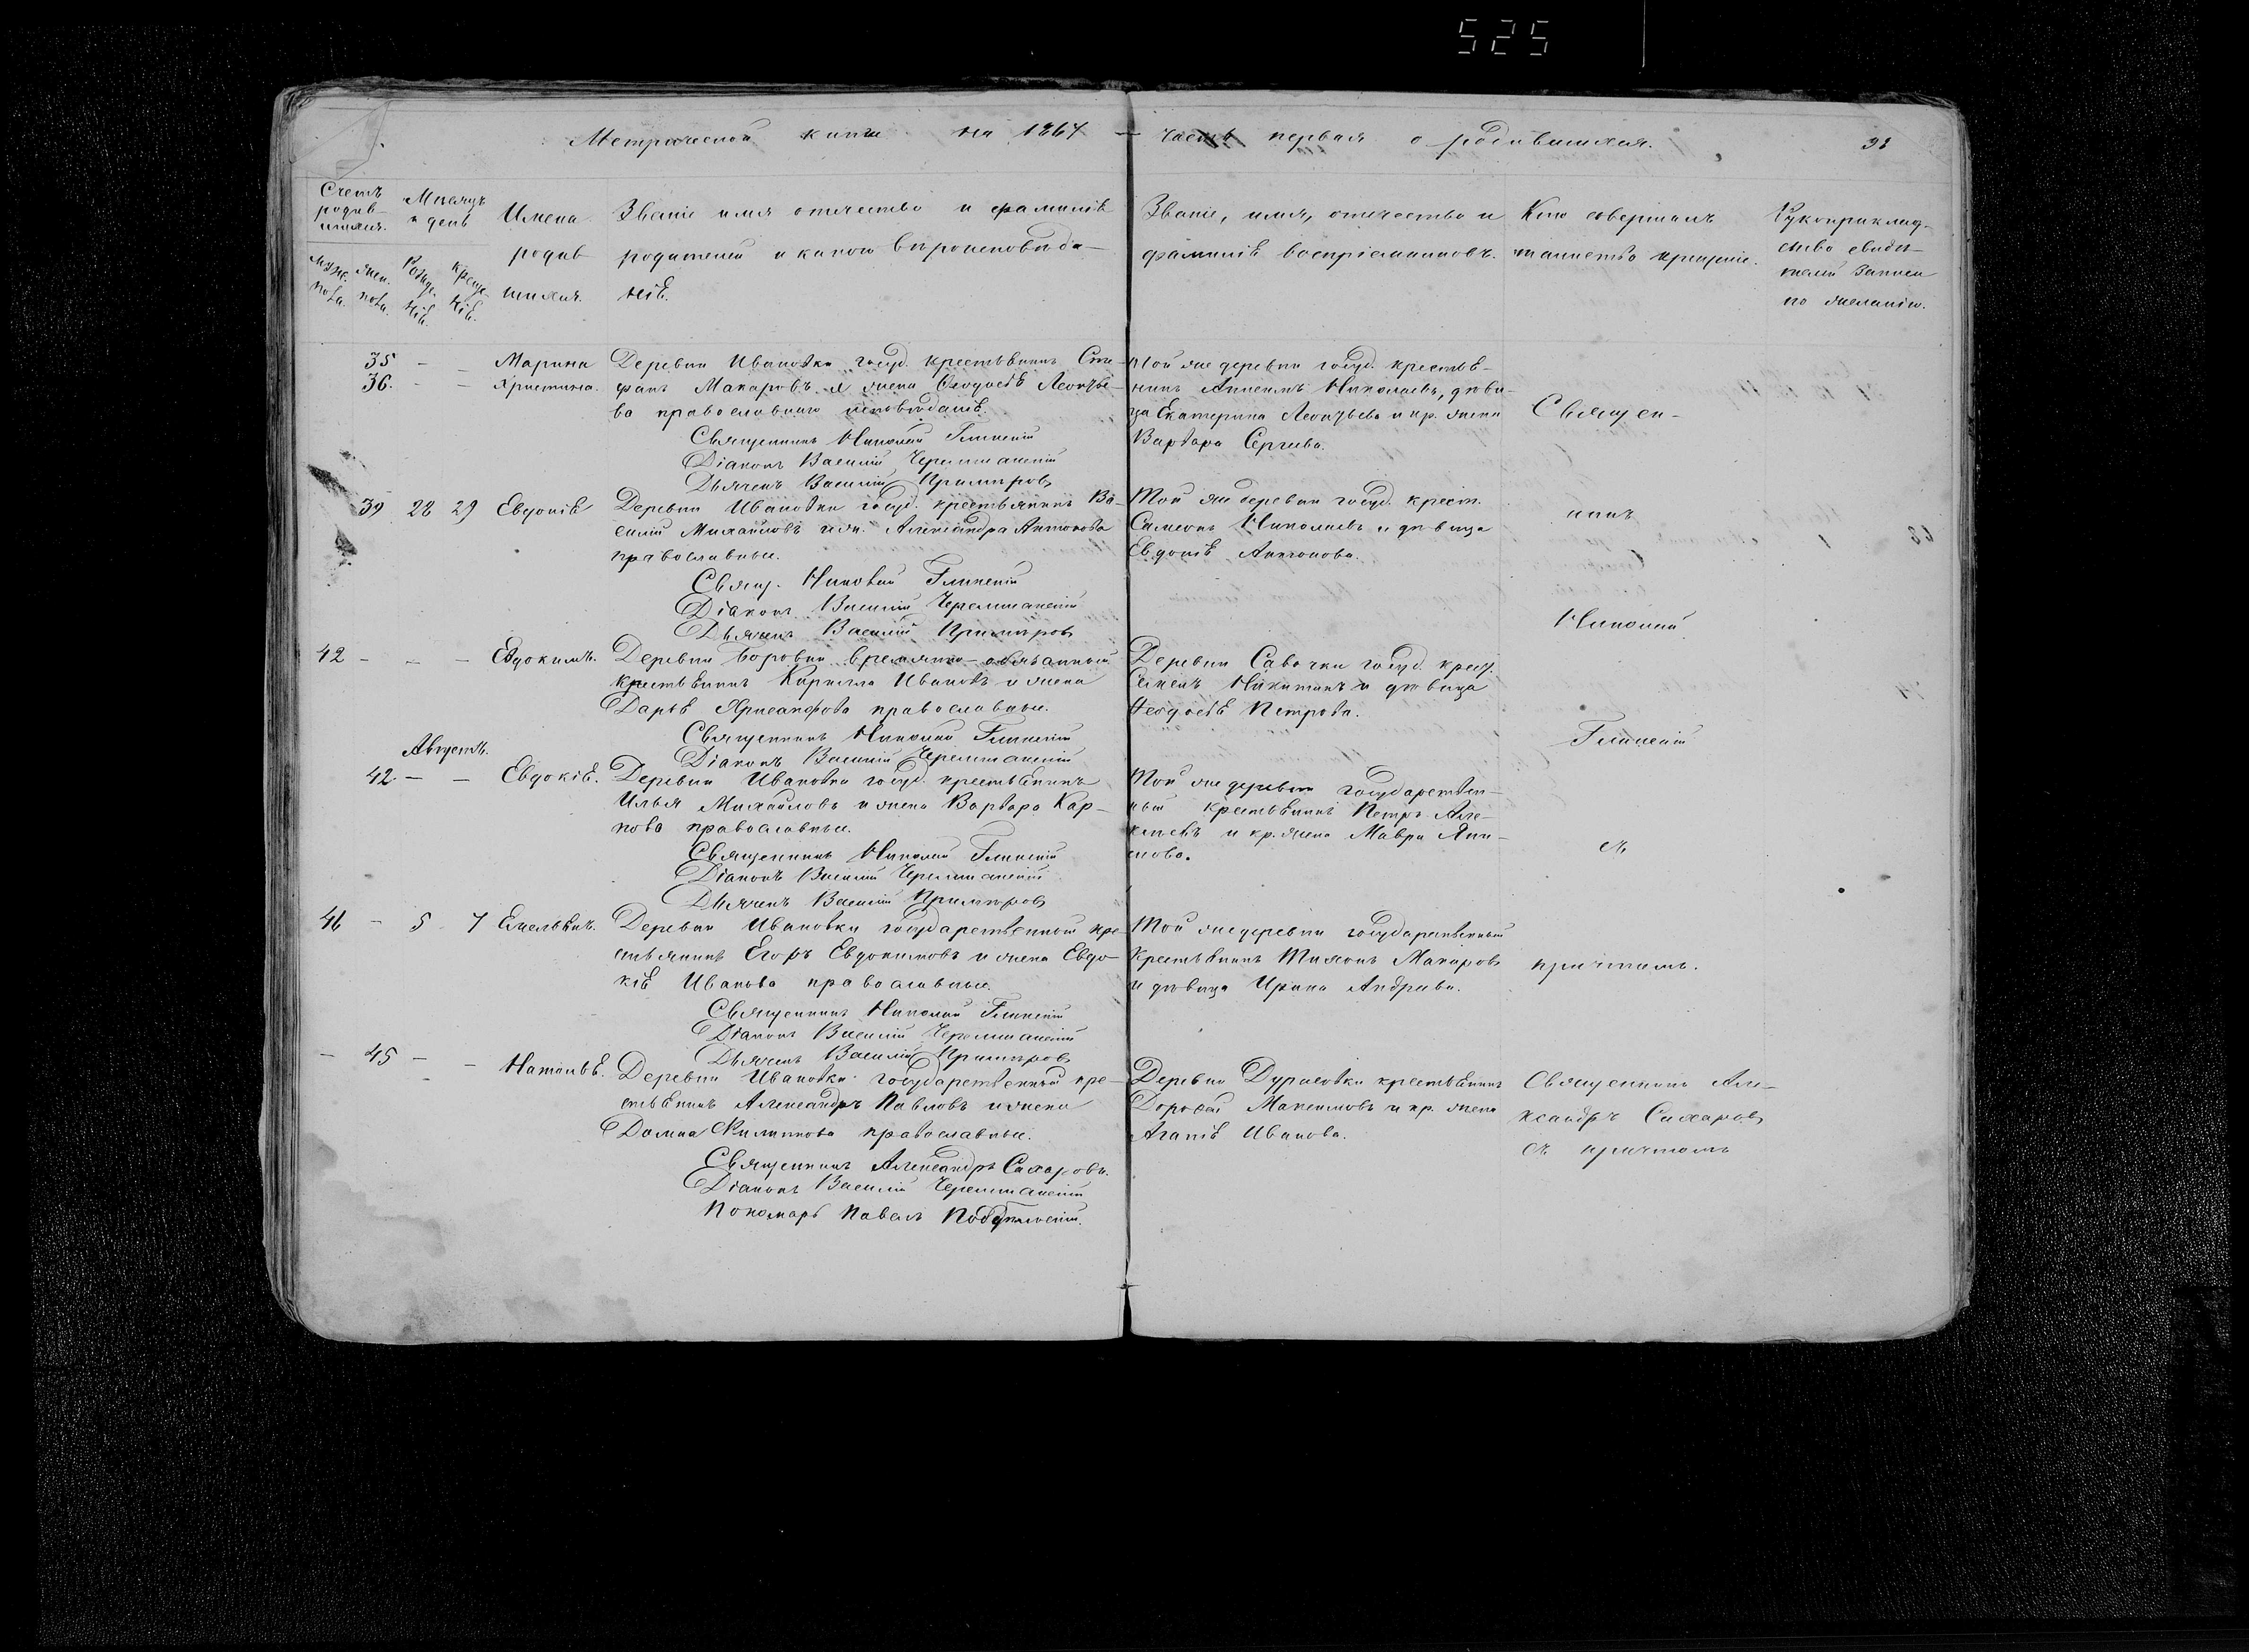 525
Метрической книги на 1867 — часть первая о родившихся.
Счетъ родив-шихся.
Мѣсяцъ и день
Имена родив шихся.
Званіе имя отчество и фамилія
родителей и какого вѣроисповѣда-
нія.
Званіе, имя, отчество и
фамилія воспріемниковъ.
Кто совершалъ
таинство крещенія.
Рукоприклад-
ство свидѣ-
телей записи
по желанію.
муж. пола. жен. пола. рожде-нія. креще-нія.
35 — — Марина
36. — — Христина.
Деревни Ивановки госуд. крестьянинъ Сте-
фанъ Макаровъ и жена Ѳеодосія Леонтье-
ва православнаго исповѣданія.
Священникъ Николай Глинскій
Діаконъ Василій Черемшанскій
Дьячекъ Василій Примѣровъ
Той же деревни госуд. крестья-
нинъ Николаевъ, дѣви-
ца Екатерина Леонтьева и кр. жена
Варвара Сергѣева.
39 28 29 Евдокія
Деревни Ивановки госуд. крестьянинъ Ва-
силій Михайловъ и жен. Александра Антонова
православные.
Свящ. Николай Глинскій
Діаконъ Василій Черемшанскій
Дьячекъ Василій Примѣровъ
Той же деревни госуд. крест.
Симеонъ Николаевъ и дѣвица
Евдокія Антонова.
42 — — — Евдокимъ.
Деревни Боровки временно-обязанный
крестьянинъ Кирилла Ивановъ и жена
Дарья Хрисанфова православные.
Священникъ Николай Глинскій
Діаконъ Василій Черемшанскій
Деревни Савочки госуд. крест.
Семенъ Никитинъ и дѣвица
Ѳеодосія Петрова.
Августъ.
42. — — Евдокія.
Деревни Ивановки госуд. крестьянинъ
Илья Михайловъ и жена Варвара Кар-
пова православные.
Священникъ Николай Глинскій
Діаконъ Василій Черемшанскій
Дьячекъ Василій Примѣровъ
Той же деревни государствен-
ный крестьянинъ Петръ Але-
ксѣевъ и кр. жена Мавра
46 — 5 7 Емельянъ.
Деревни Ивановки государственный кре-
стьянинъ Егоръ Евдокимовъ и жена Евдо-
кія Иванова православные.
Священникъ Николай Глинскій
Діаконъ Василій Черемшанскій
Дьячекъ Василій Примѣровъ
Той же деревни государственный
крестьянинъ Тихонъ Макаровъ
и дѣвица Ирина Андреева.
— 45 — — Наталья.
Деревни Ивановки государственный кре-
стьянинъ Александръ Павловъ и жена
Домна Филиппова православные.
Священникъ Александръ Сахаровъ.
Діаконъ Василій Черемшанскій
Пономарь Павелъ
Деревни Дурасовки крестьянинъ
Дорофей Максимовъ и кр. жена
Агапія Иванова.
Священ-
никъ
Николай
Глинскій
съ
причтомъ.
Священникъ Але-
ксандръ Сахаровъ
съ причтомъ